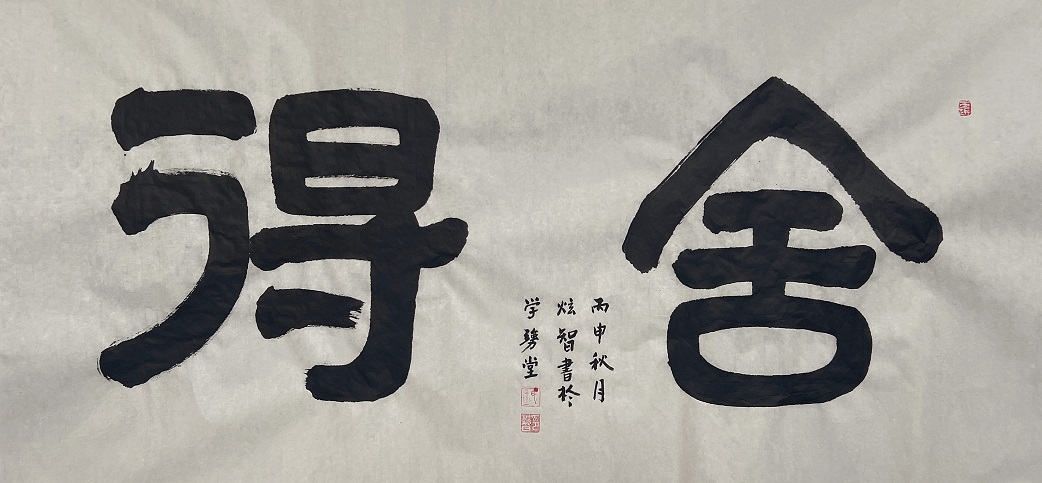 舍得
丙申秋月
炫智書於
学勝堂